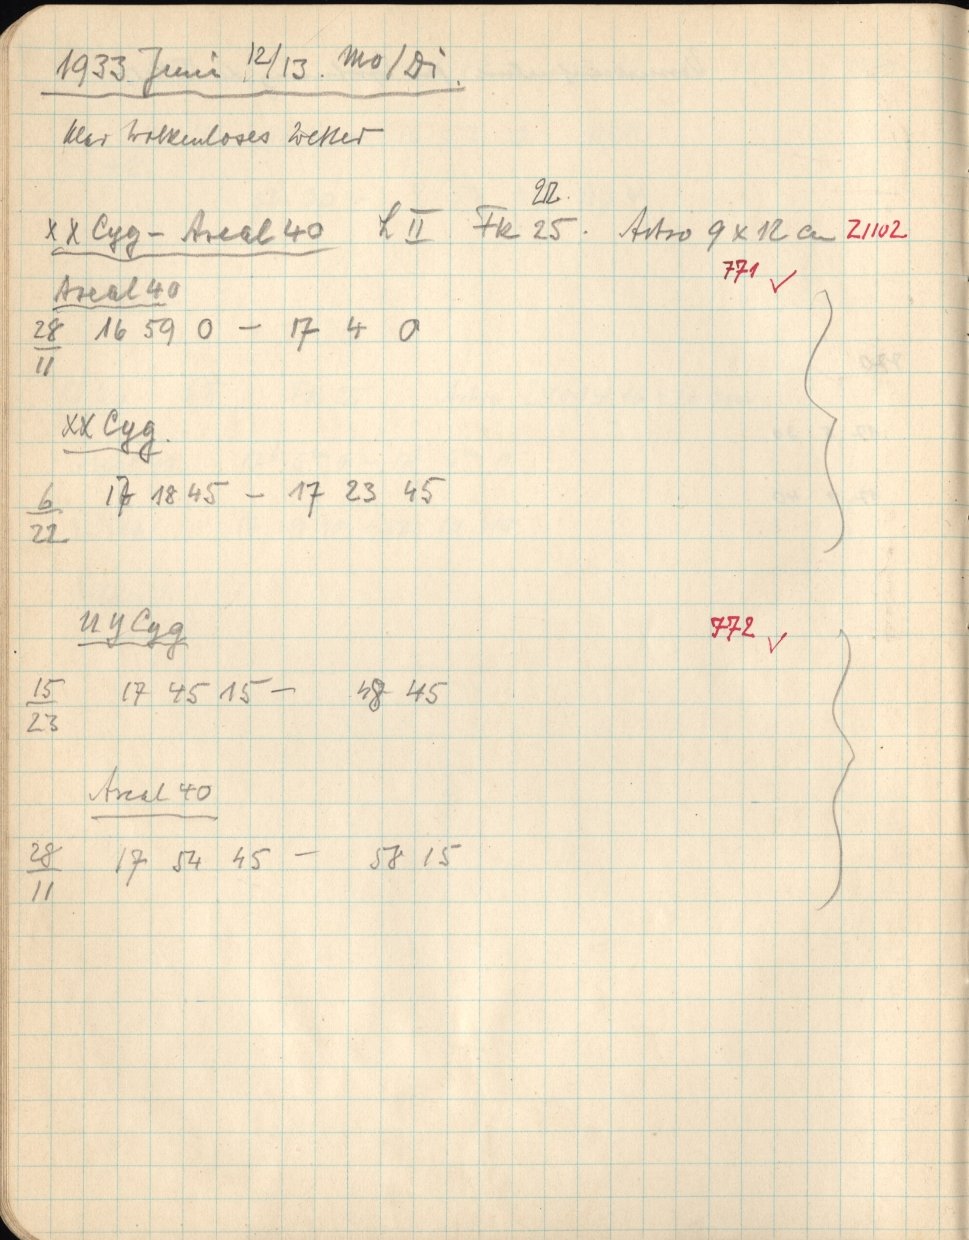 1933 Juni 12/13. Mo/Di.
klar wolkenloses Wetter
22.
XX Cyg - Areal 40 L II Fk 25. Astro 9 x 12 cm Z1102
771 ✓
Areal 40
28/11 16 59 0 — 17 4 0
XX Cyg.
6/22 17 18 45 — 17 23 45
Cyg
772 ✓
15/23 17 45 15 — 48 45
Areal 40
28/11 17 54 45 — 58 15